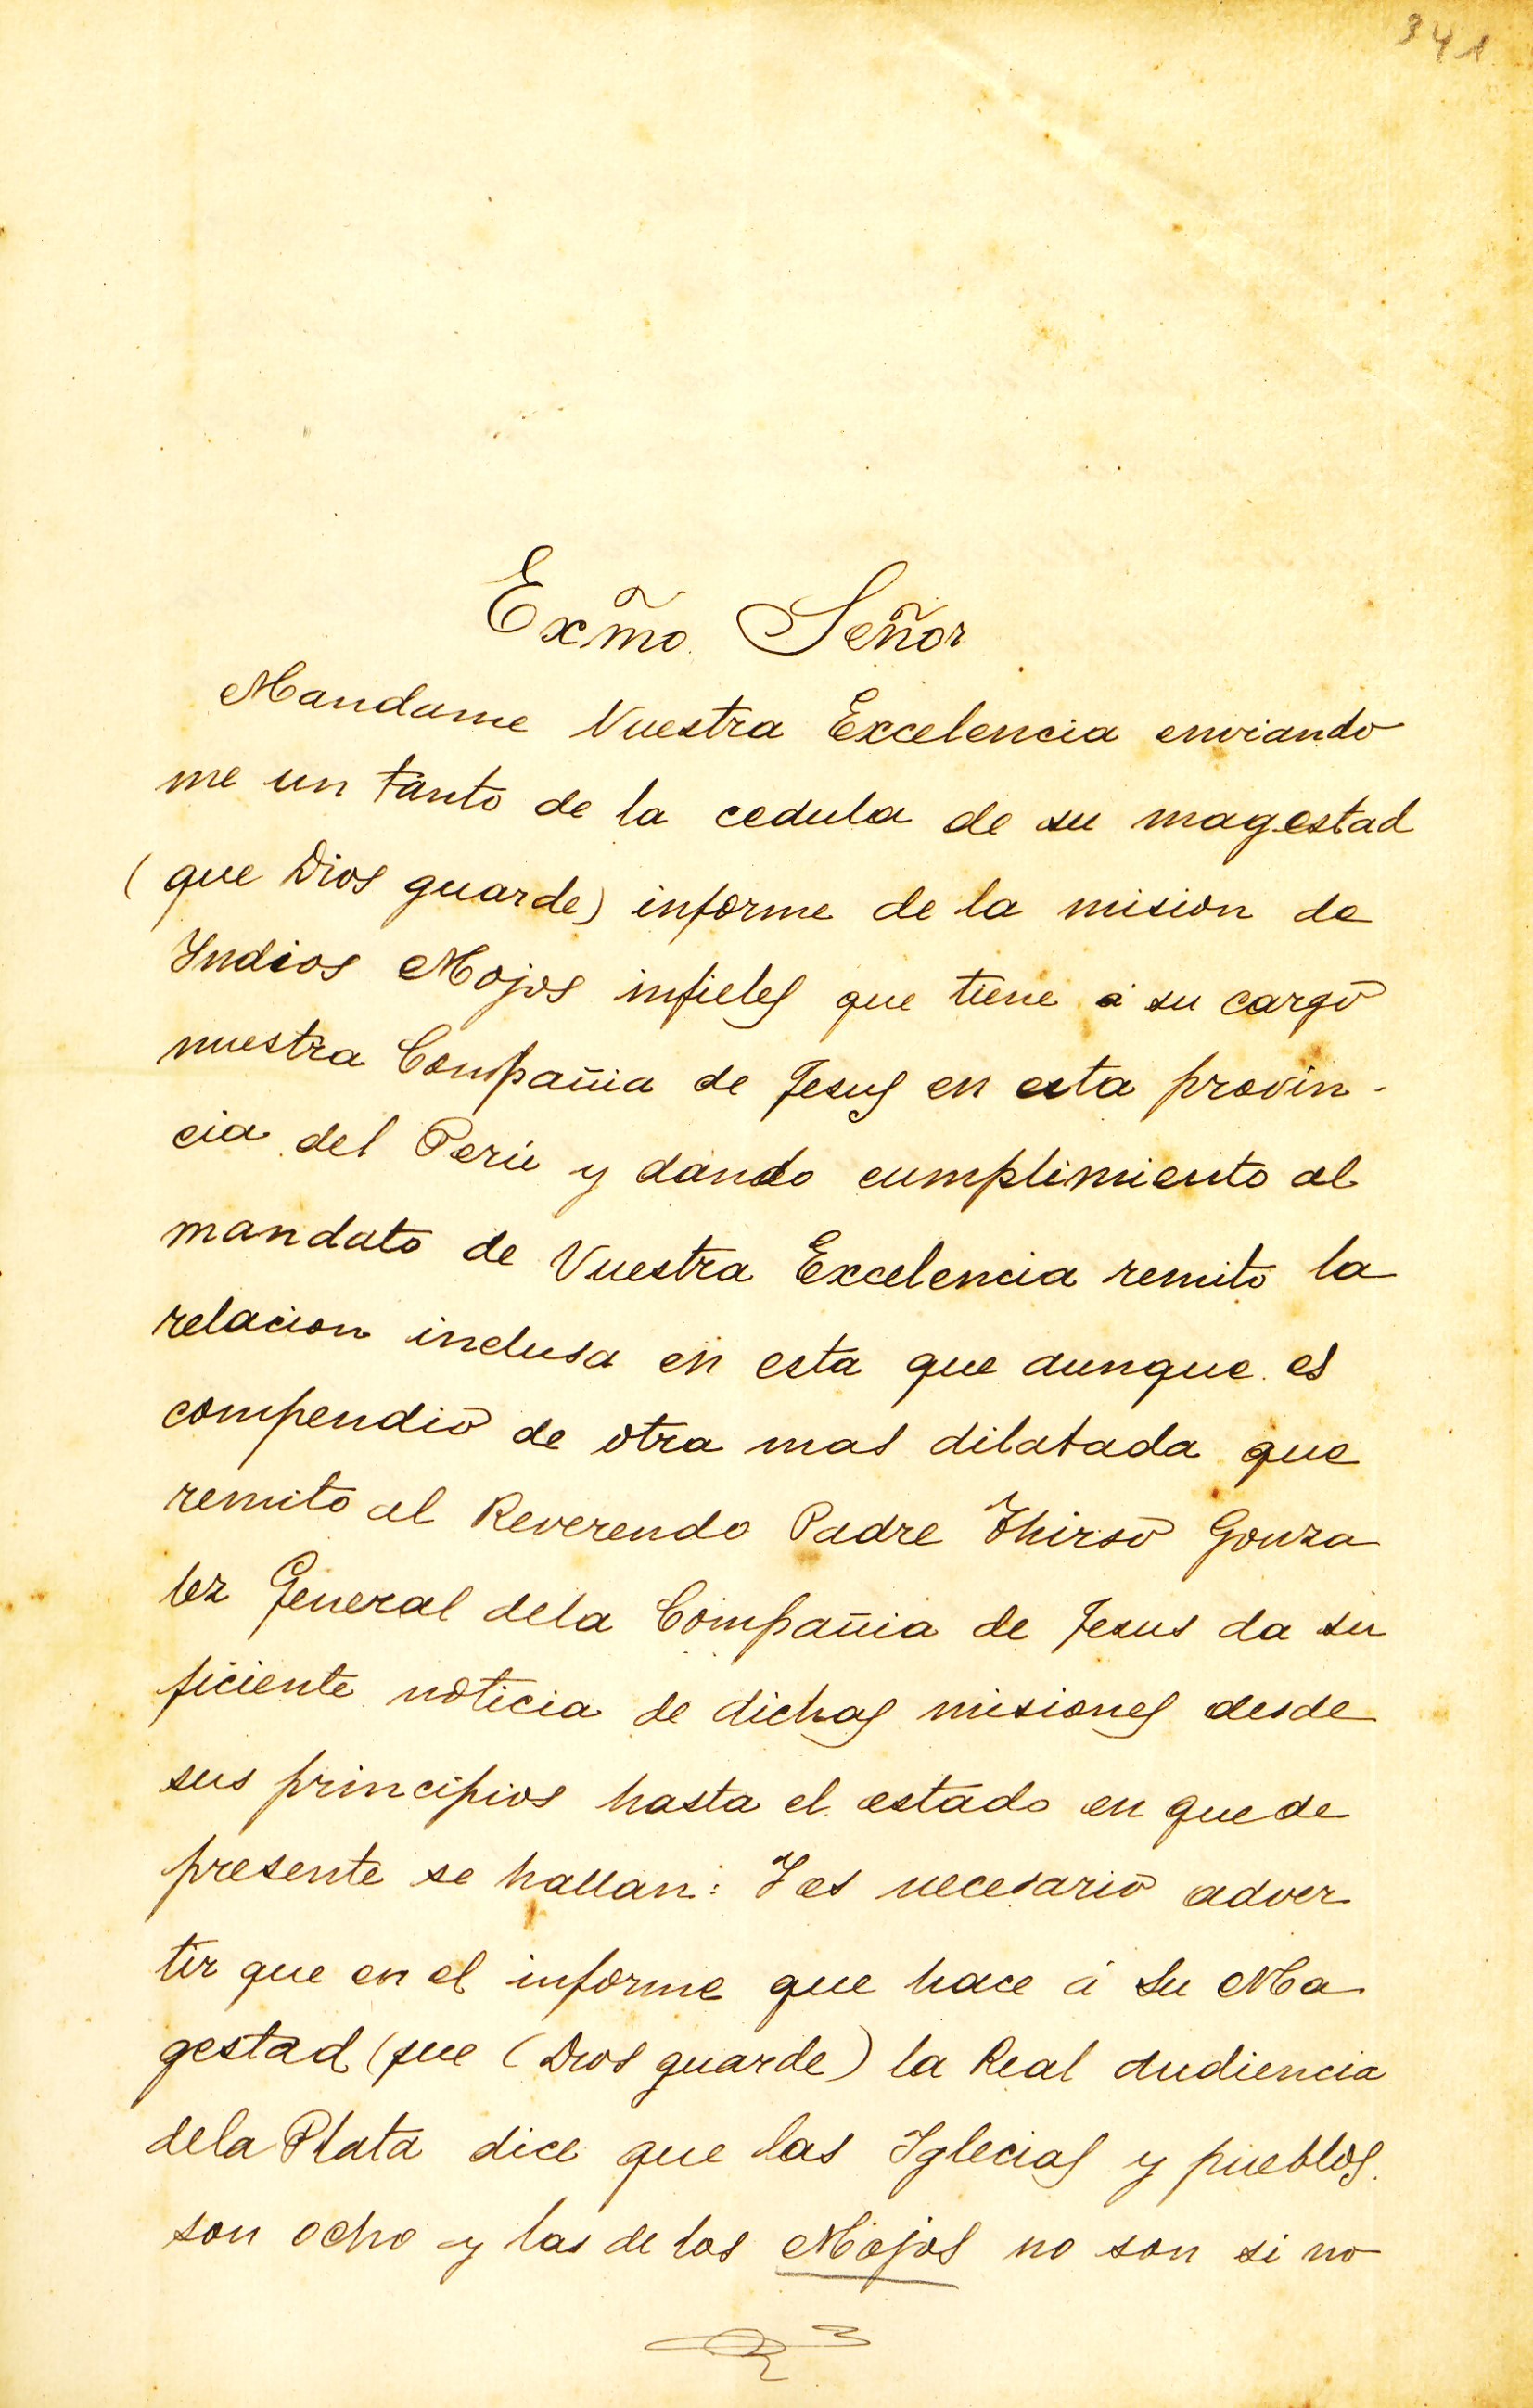 341
Exm̃o. Señor
Mandame Vuestra Excelencia enviando
me un tanto de la cedula de su magestad
(que Dios guarde) informe de la mision de
Indios Mojos infieles que tiene á su cargo
nuestra Compañia de Jesus en esta provin-
cia del Perú y dando cumplimiento al
mandato de Vuestra Excelencia remito la
relacion inclusa en esta que aunque es
compendio de otra mas dilatada que
remito al Reverendo Padre Thirso Gonza
lez General dela Compañia de Jesus da su
ficiente noticia de dichas misiones desde
sus principios hasta el estado en que de
presente se hallan: Y es necesario adver
tir que en el informe que hace á Su Ma
gestad (que (Dios guarde) la Real Audiencia
dela Plata dice que las Iglecias y pueblos
son ocho y las de los Mojos no son si no